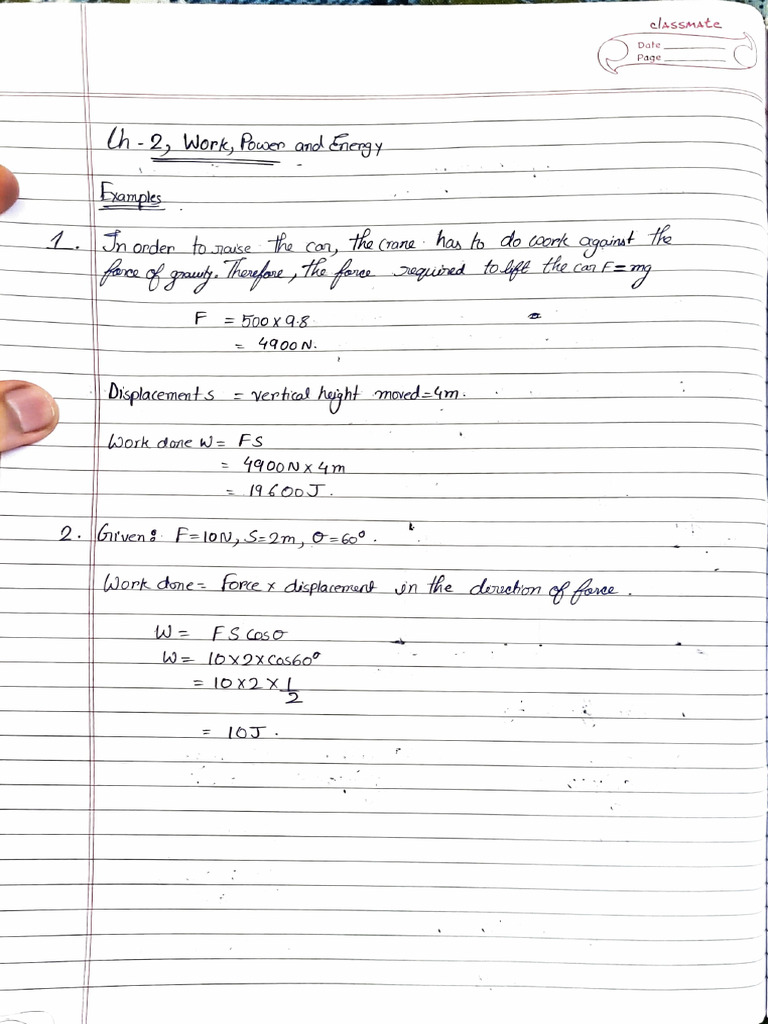 classmate
Date
Page
Ch - 2, Work, Power and Energy
Examples
1. In order to raise the car, the crane has to do work against the
force of gravity. Therefore, the force required to lift the car F = mg
F = 500 × 9.8
= 4900 N.
Displacement s = vertical height moved = 4m.
Work done W = FS
= 4900 N × 4m
= 19600 J.
2. Given: F = 10N, S = 2m, θ = 60°.
Work done = Force × displacement in the direction of force.
W = FS cosθ
W = 10 × 2 × cos60°
= 10 × 2 × 1/2
= 10 J.